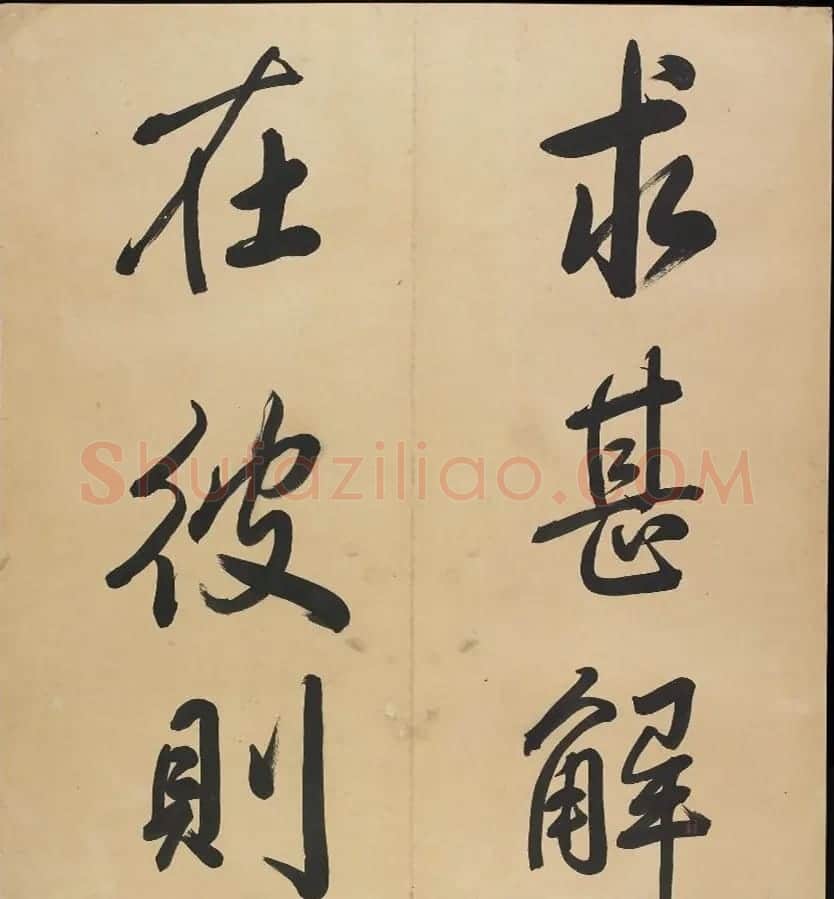 求甚解
在彼則
Shufaziliao.COM